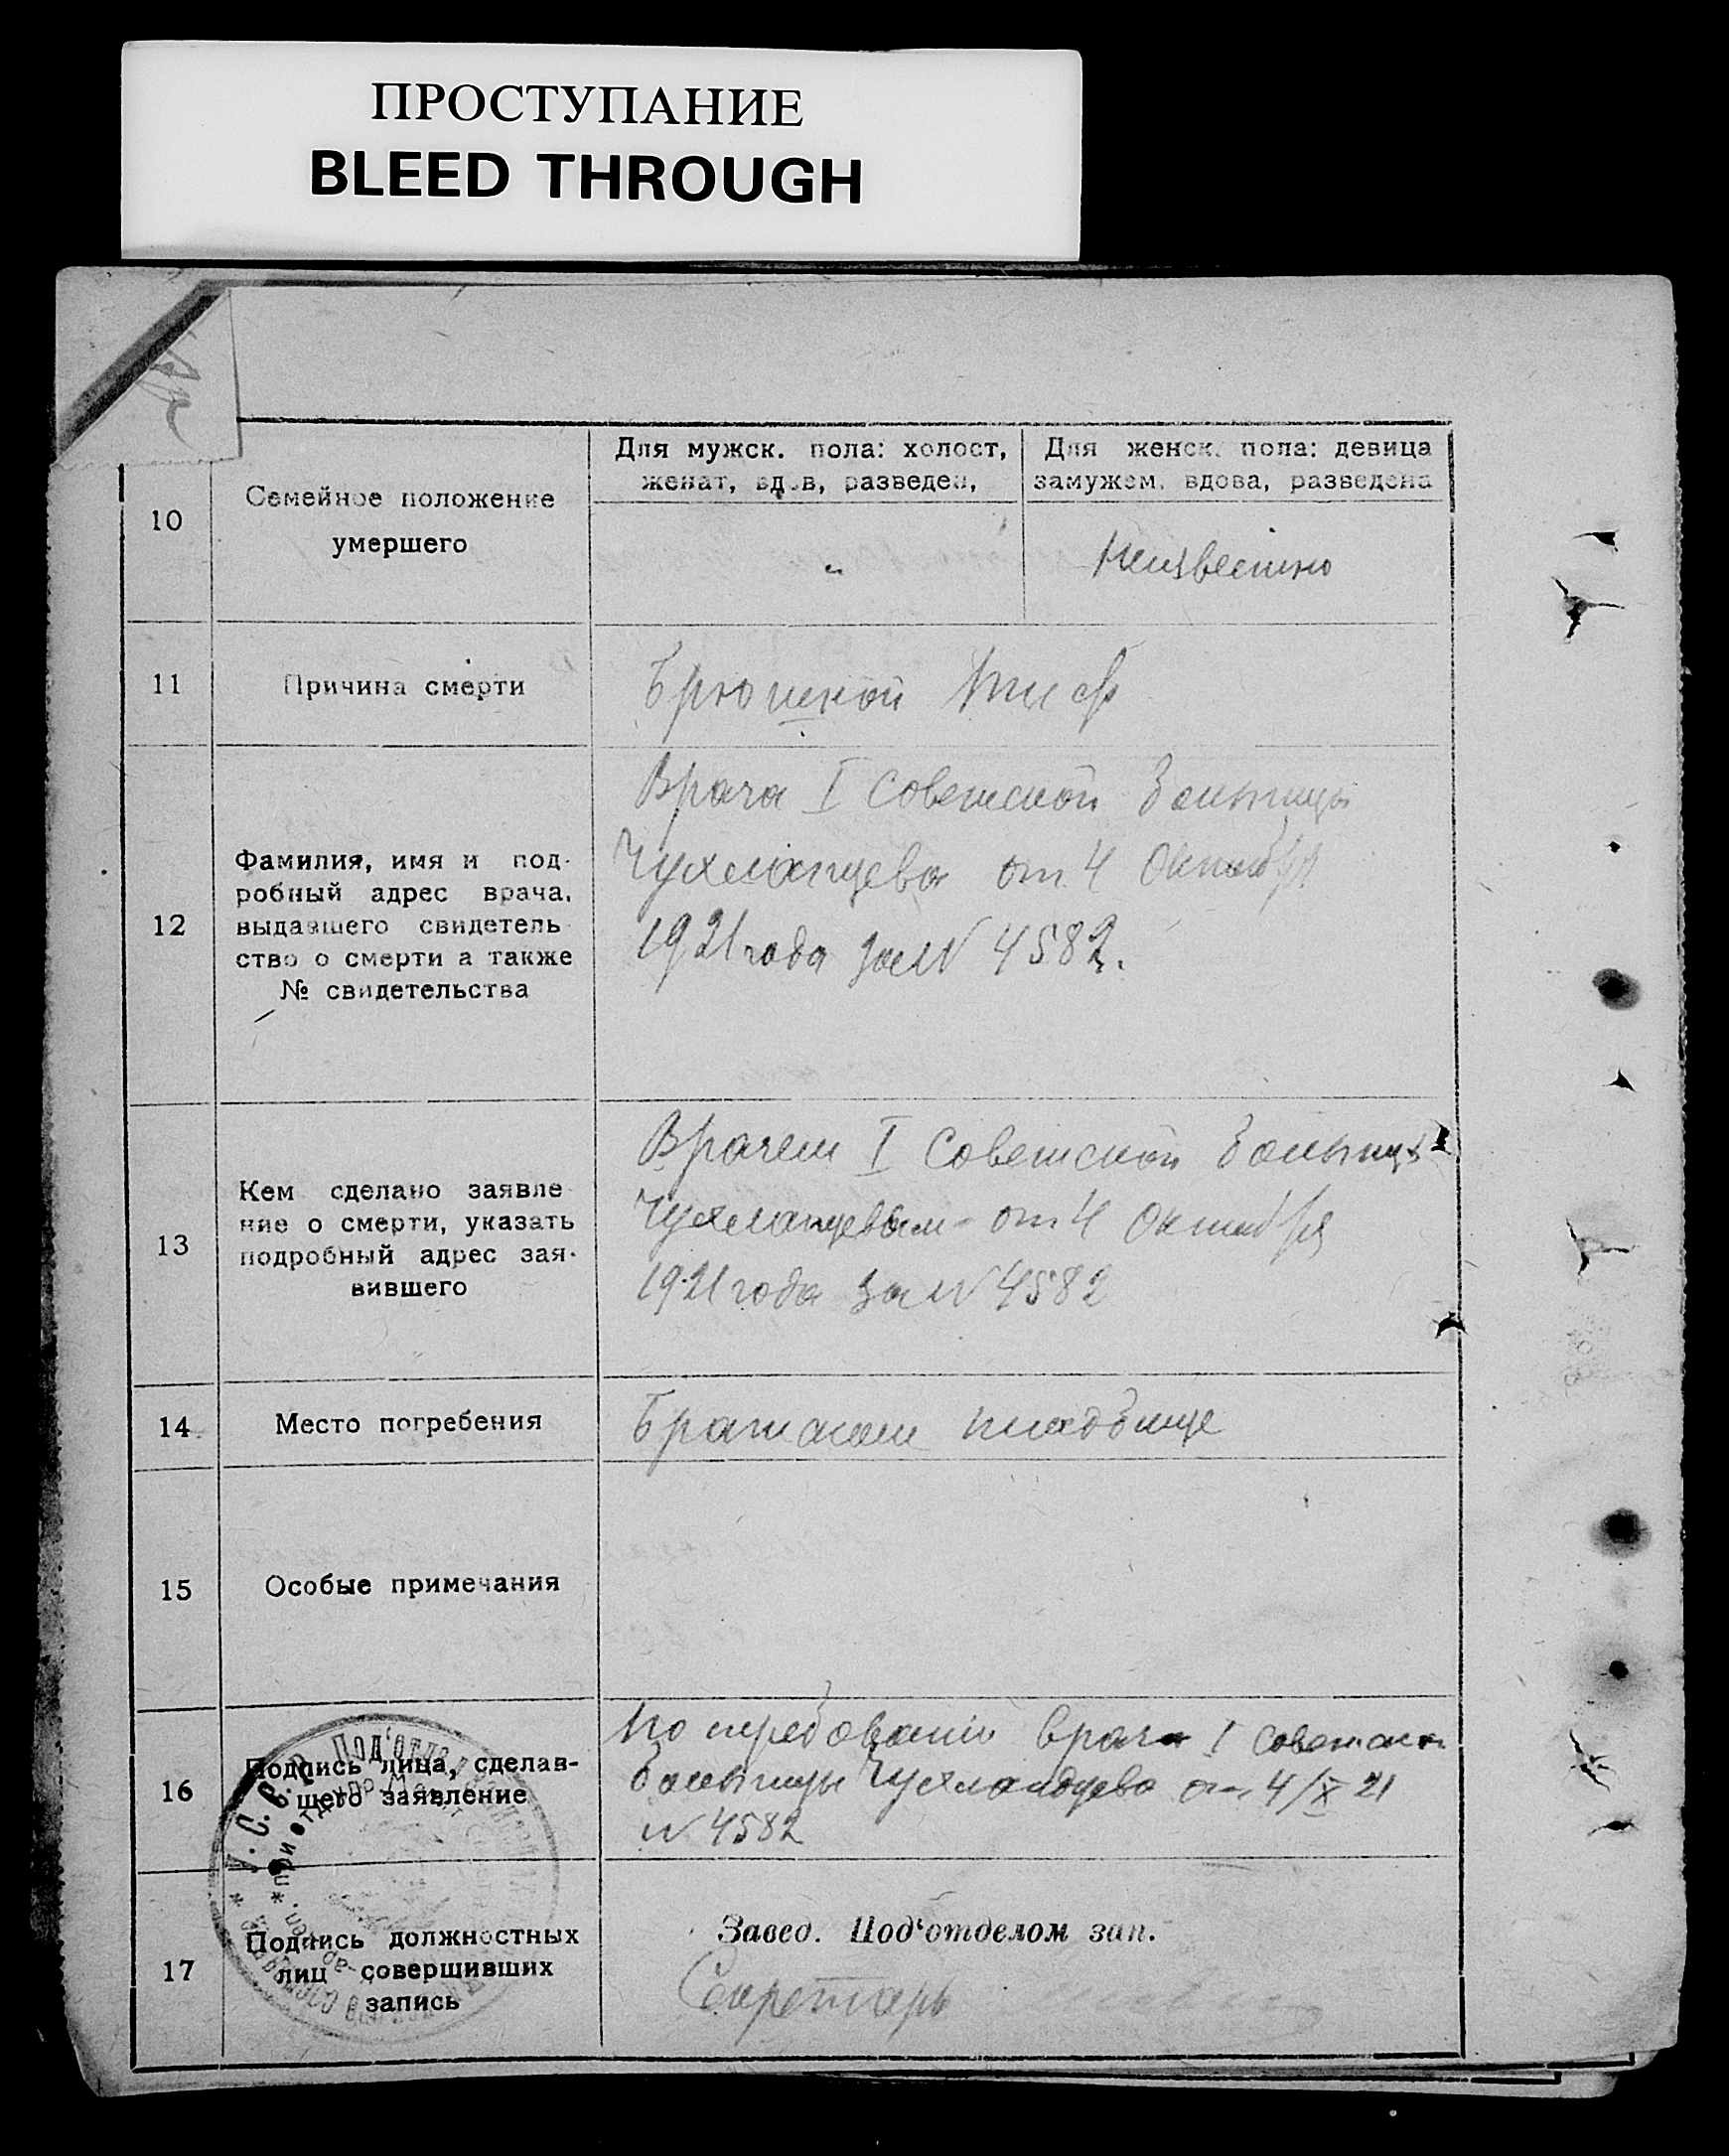 ПРОСТУПАНИЕ
BLEED THROUGH
10
Семейное положение
умершего
Для мужск. пола: холост,
женат, вдов, разведен,
Для женск. пола: девица
замужем, вдова, разведена
"
Неизвестно
11
Причина смерти
Брюшной тиф
12
Фамилия, имя и под-
робный адрес врача,
выдавшего свидетель
ство о смерти а также
№ свидетельства
Врача I Советской больницы
от 4 Октября
1921 года за N 4582.
13
Кем сделано заявле
ние о смерти, указать
подробный адрес зая-
вившего
Врачем I Советской больницы
от 4 Октября
1921 года за N 4582
14
Место погребения
кладбище
15
Особые примечания
16
Подпись лица, сделав-
щего заявление
По требованию врача I
больницы от 4/X 21
N 4582
17
Подпись должностных
лиц совершивших
запись
Завед. Под‘отделом зап.
Секретарь